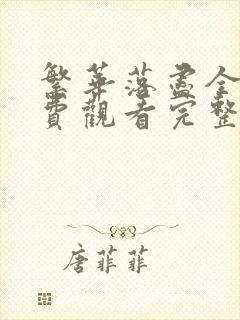 繁華落盡全
費觀看完整
唐菲菲